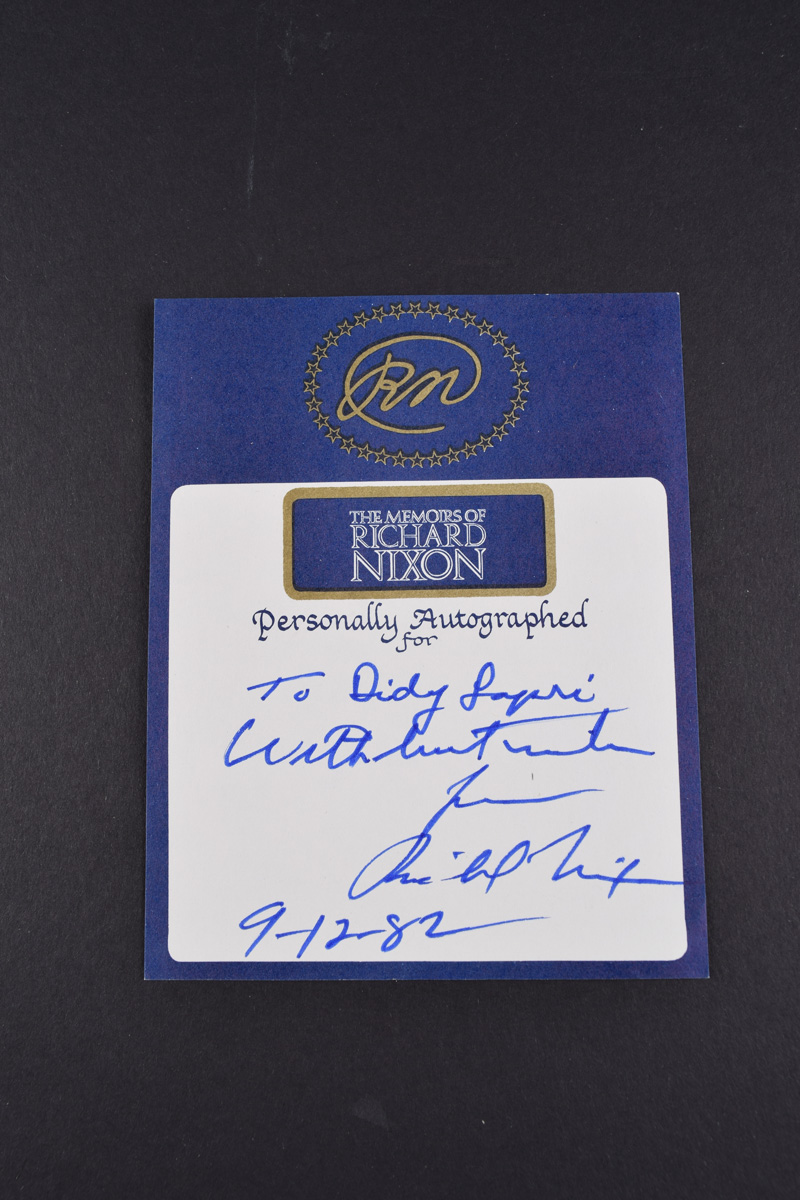 RN
THE MEMOIRS OF
RICHARD
NIXON
Personally Autographed
for
To Didy
With best wishes
from
Richard Nixon
9-12-82